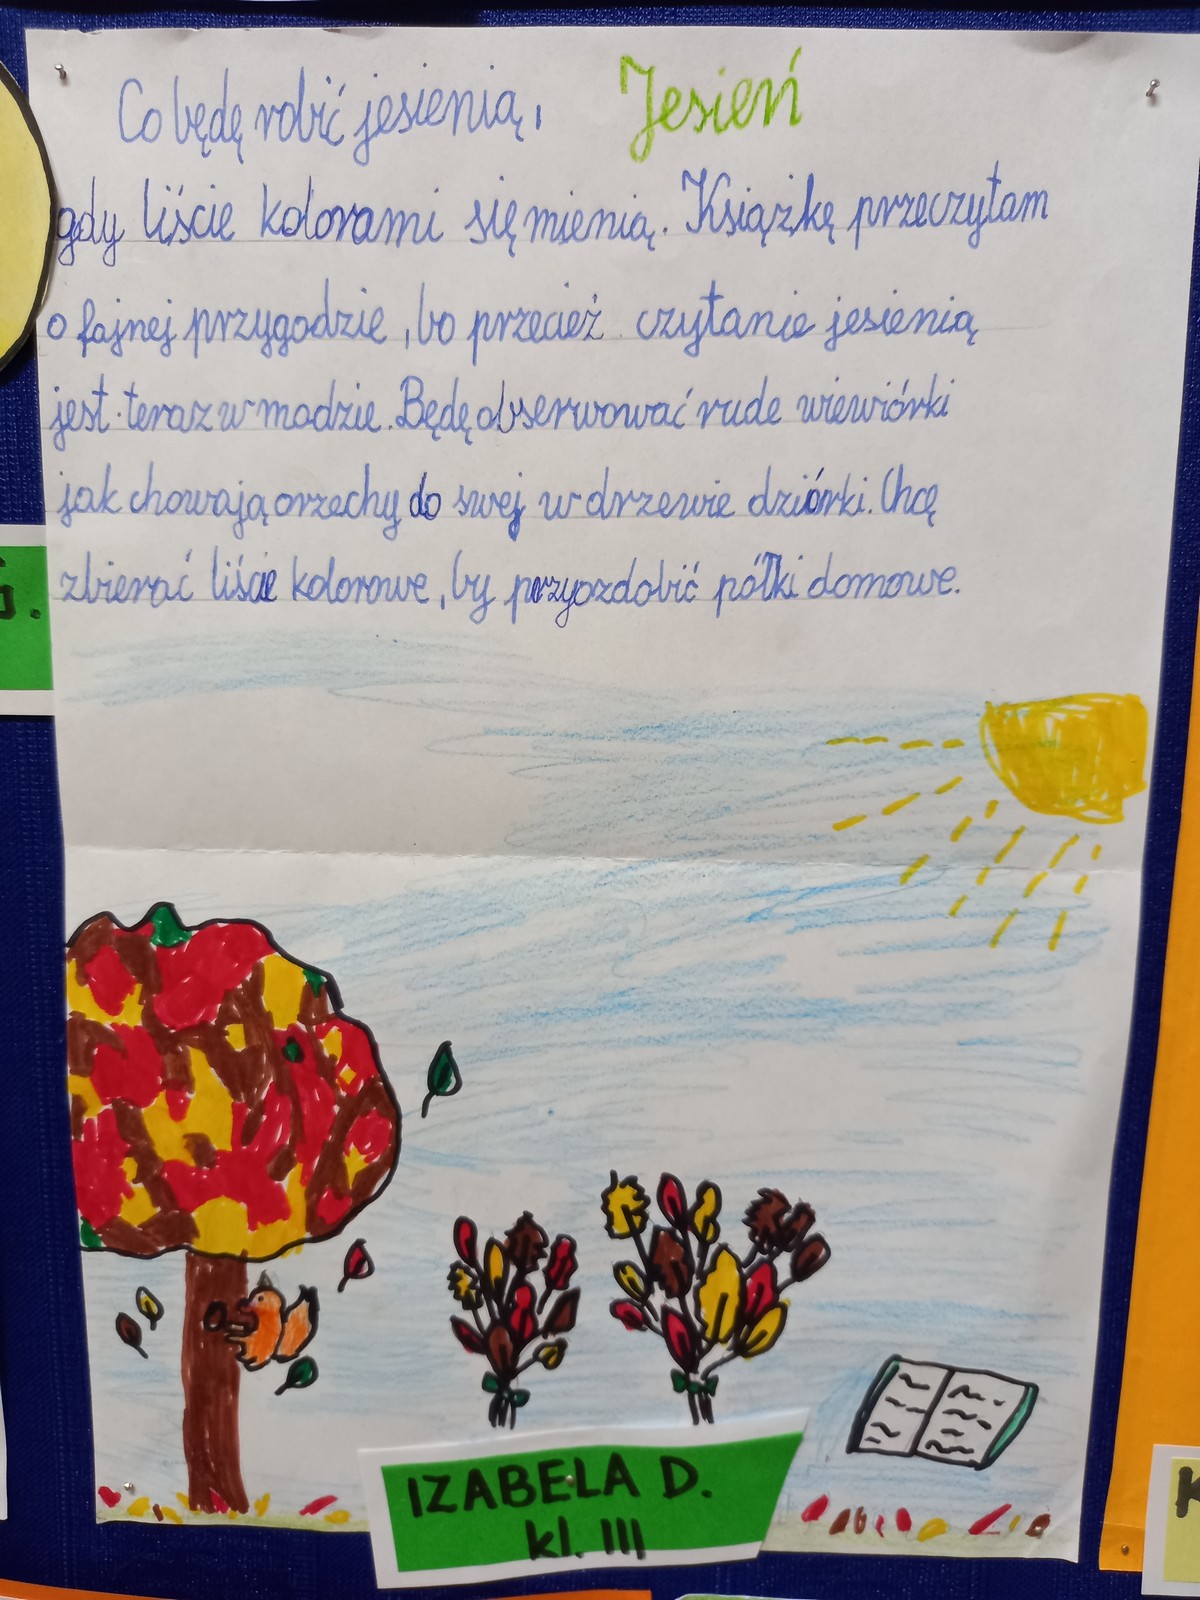 Jesień
Co będę robić jesienią,
gdy liście kolorami się mienią. Książkę przeczytam
o fajnej przygodzie, bo przecież czytanie jesienią
jest teraz w modzie. Będę obserwować rude wiewiórki
jak chowają orzechy do swej w drzewie dziórki. Chcę
zbierać liście kolorowe, by przyozdobić półki domowe.
IZABELA D.
kl. III